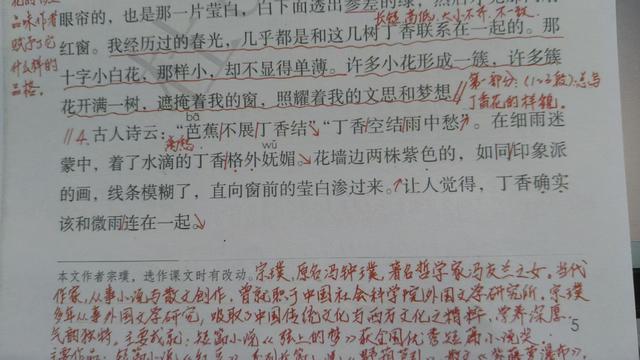 品味作者
赋予了它
什么样的
品格。
眼帘的，也是那一片莹白，白下面透出参差的绿，然后才见那两扇
长短、高低、大小不齐，不一致
红窗。我经历过的春光，几乎都是和这几树丁香联系在一起的。那
十字小白花，那样小，却不显得单薄。许多小花形成一簇，许多簇
花开满一树，遮掩着我的窗，照耀着我的文思和梦想。
第一部分：(1~3段)：总写
丁香花的样貌。
bā
4. 古人诗云：“芭蕉不展丁香结”“丁香空结雨中愁”。在细雨迷
wǔ
蒙中，着了水滴的丁香格外妩媚。花墙边两株紫色的，如同印象派
的画，线条模糊了，直向窗前的莹白渗过来。让人觉得，丁香确实
该和微雨连在一起。
本文作者宗璞，选作课文时有改动。宗璞，原名冯钟璞，著名哲学家冯友兰之女。当代
作家，从事小说与散文创作，曾就职于中国社会科学院外国文学研究所。宗璞
多年从事外国文学研究，吸取了中国传统文化与西方文化之精粹，学养深厚，
气韵独特。主要成就：短篇小说《弦上的梦》获全国优秀短篇小说奖
5